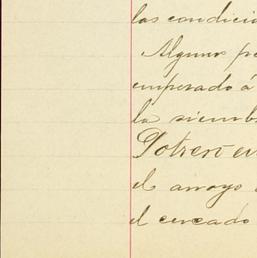 las condicio
Algunr pe
emperado á
la siembr
Potrero en
el arroyo
el cercado